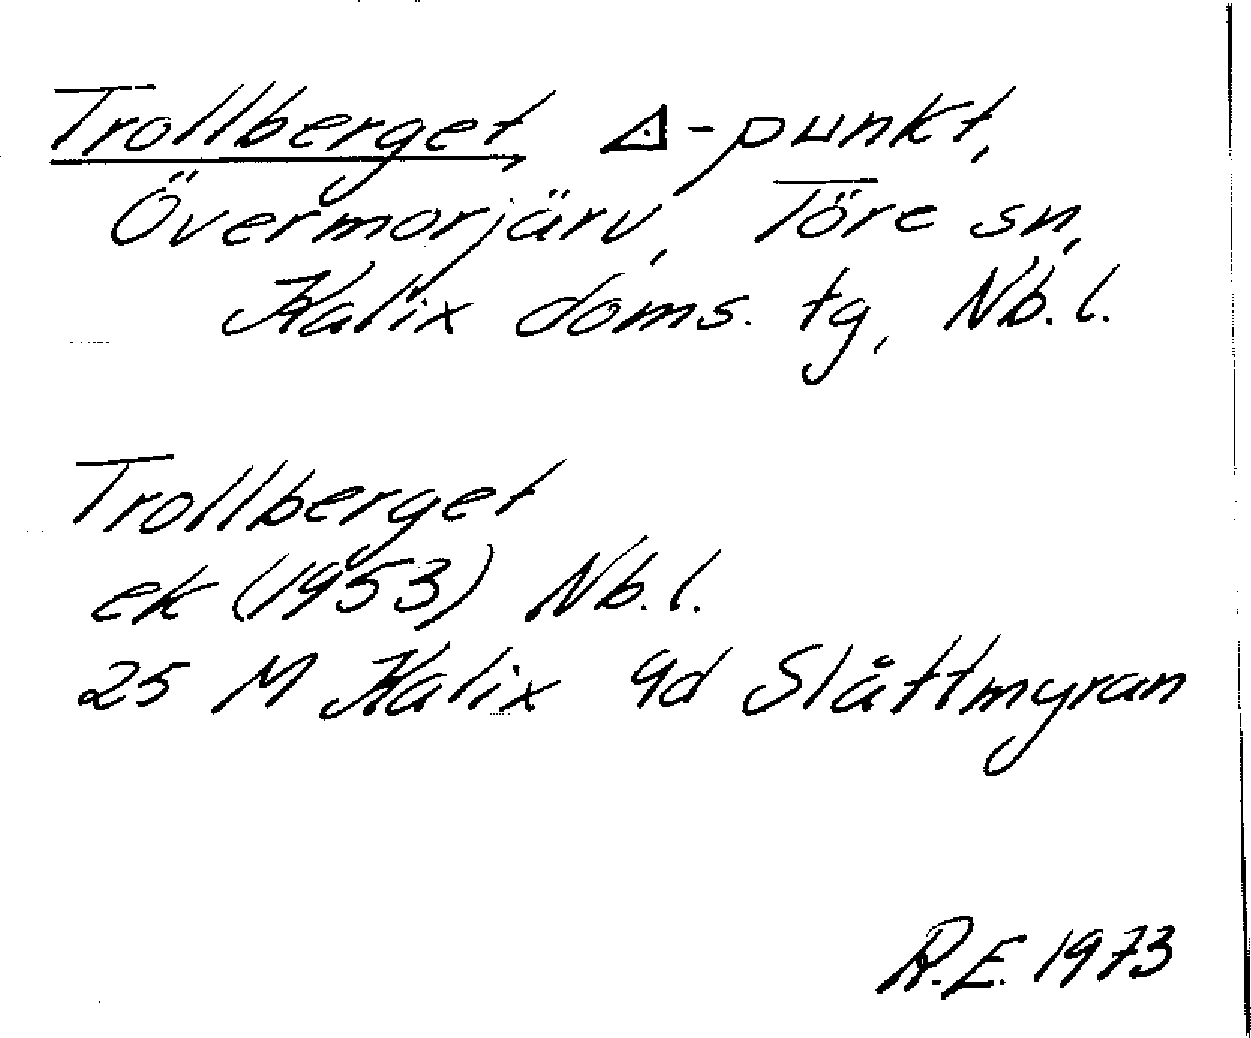 Trollberget, △-punkt,
Övermorjärv, Töre sn,
Kalix doms. tg, Nb. l.
Trollberget
ek (1953) Nb. l.
25 M Kalix 9d Slåttmyran
R.E. 1973